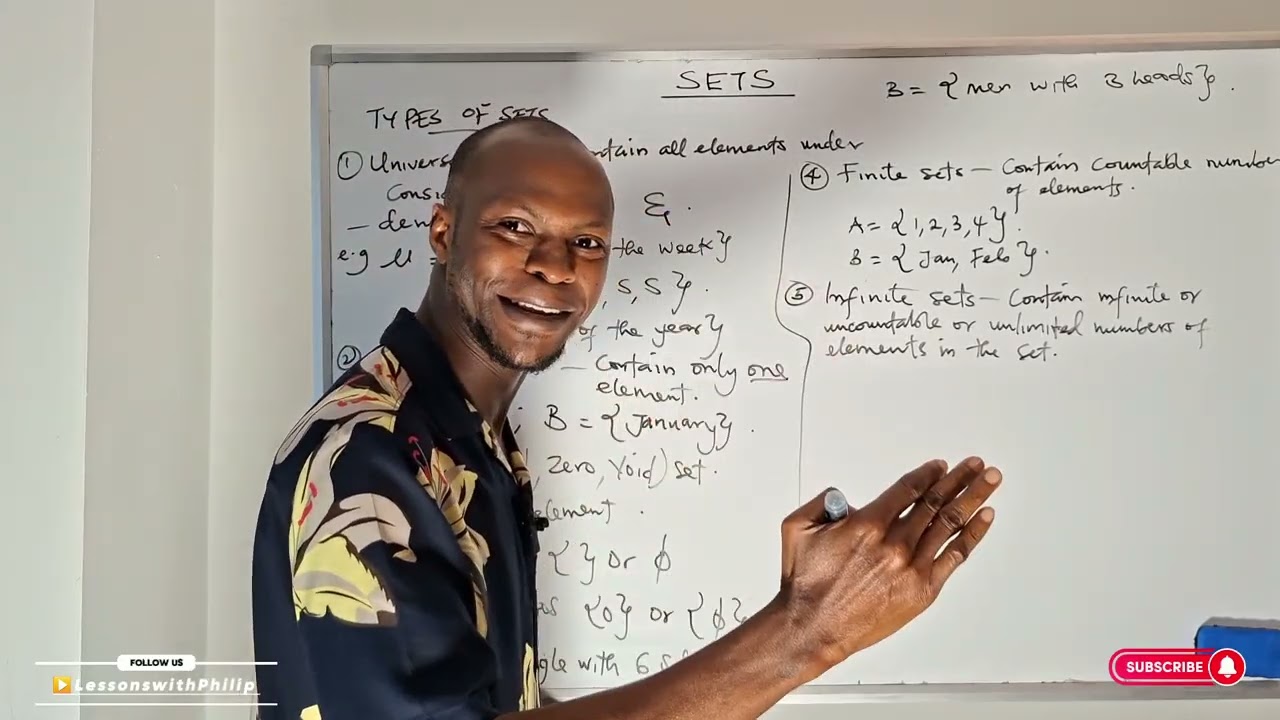 SETS
TYPES OF SETS
① Univers ntain all elements under
Consi
– den ξ.
e.g μ = the week}
, S, S}.
of the year}
② – Contain only one
element.
; B = {January}.
, Zero, Void) set.
element.
{ } or φ
as {0} or {φ}
gle with 6 s
B = {men with 3 heads}.
④ Finite sets – Contain Countable number
of elements.
A = {1, 2, 3, 4}.
B = {Jan, Feb}.
⑤ Infinite sets – Contain infinite or
uncountable or unlimited numbers of
elements in the set.
FOLLOW US
LessonswithPhilip
SUBSCRIBE